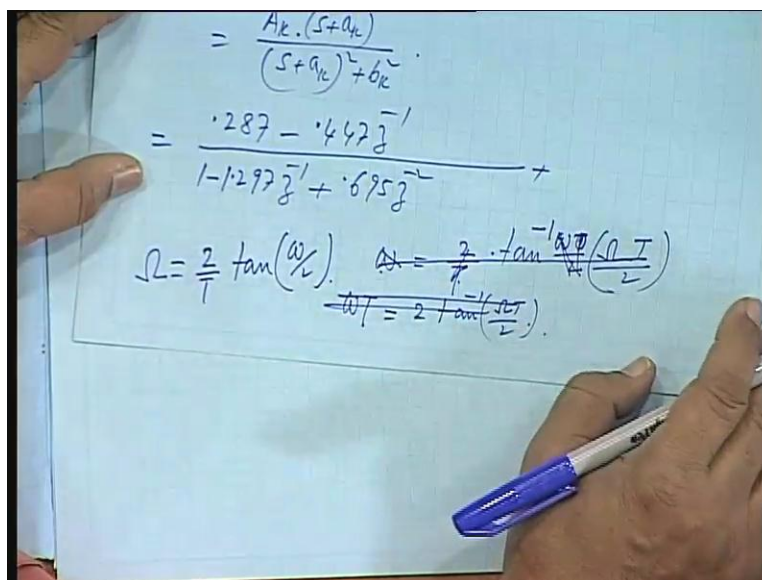 = Ak.(s+ak) / (s+ak)²+bk² .
= .287 - .447z⁻¹ / 1-1.297z⁻¹ + .695z⁻² +
Ω = 2/T tan(ω/2). ω = 2/T . tan⁻¹ (ΩT/2)
ωT = 2 tan⁻¹(ΩT/2).